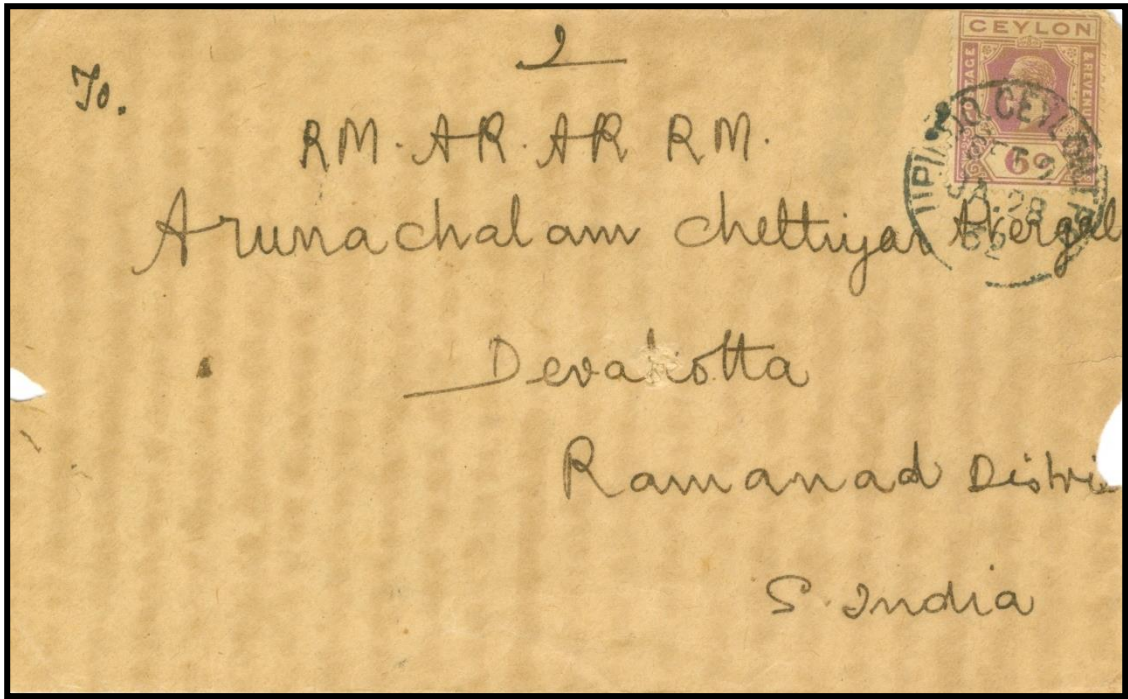 உ
To.
RM. AR. AR RM.
Arunachalam chettiyar Avergal
Devakotta
Ramanad Distric
S. India
CEYLON
POSTAGE
& REVENUE
6c
CEYLON
JA. 28